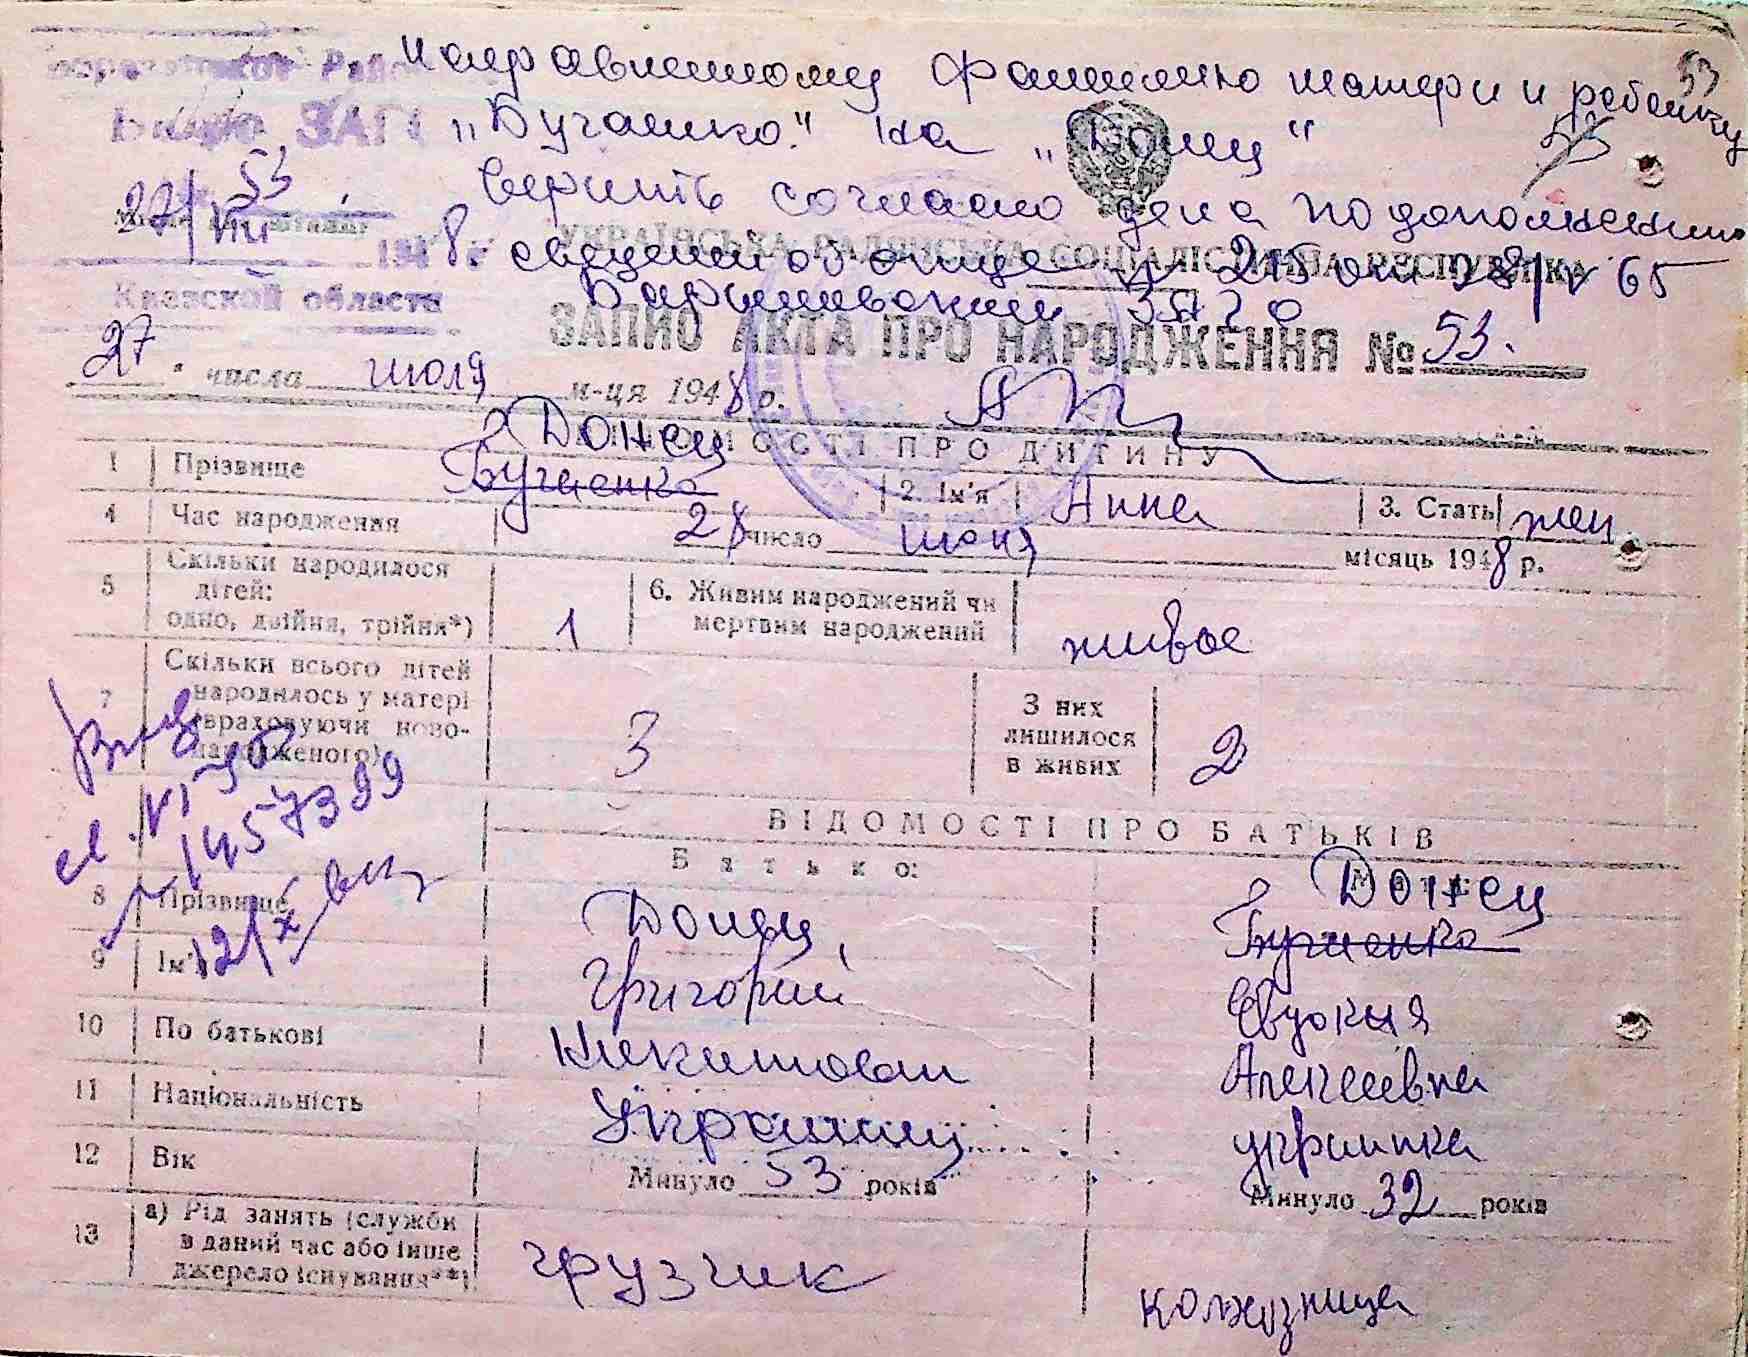 53
направленному фамилию матери и ребенку
"Бугаенко" на "Донец"
верить согласно дела по дополнению
сведений об отце № 215 от 28/V 65
Барышевский ЗАГС
Бюро ЗАГС
53
27/VII 1948 г.
Киевской области
УКРАЇНСЬКА РАДЯНСЬКА СОЦІАЛІСТИЧНА РЕСПУБЛІКА
ЗАПИС АКТА ПРО НАРОДЖЕННЯ № 53.
27 числа июля м-ця 1948 р.
ВІДОМОСТІ ПРО ДИТИНУ
Донец
1 Прізвище Бугаенко 2. Ім'я Анна 3. Стать жен.
4 Час народження 28 число июня місяць 1948 р.
5 Скільки народилося дітей: одно, двійня, трійня*) 1 6. Живим народжений чи мертвим народжений живое
7 Скільки всього дітей народилось у матері (враховуючи новонародженого) 3 З них лишилося в живих 2
1457399
ВІДОМОСТІ ПРО БАТЬКІВ
Батько: Мати:
Донец
8 Прізвище Донец Бугаенко
9 Ім'я Григорий Евдокия
10 По батькові Никитович Алексеевна
11 Національність Украинец украинка
12 Вік Минуло 53 років Минуло 32 років
13 а) Рід занять (служби в даний час або інше джерело існування**) грузчик колхозница